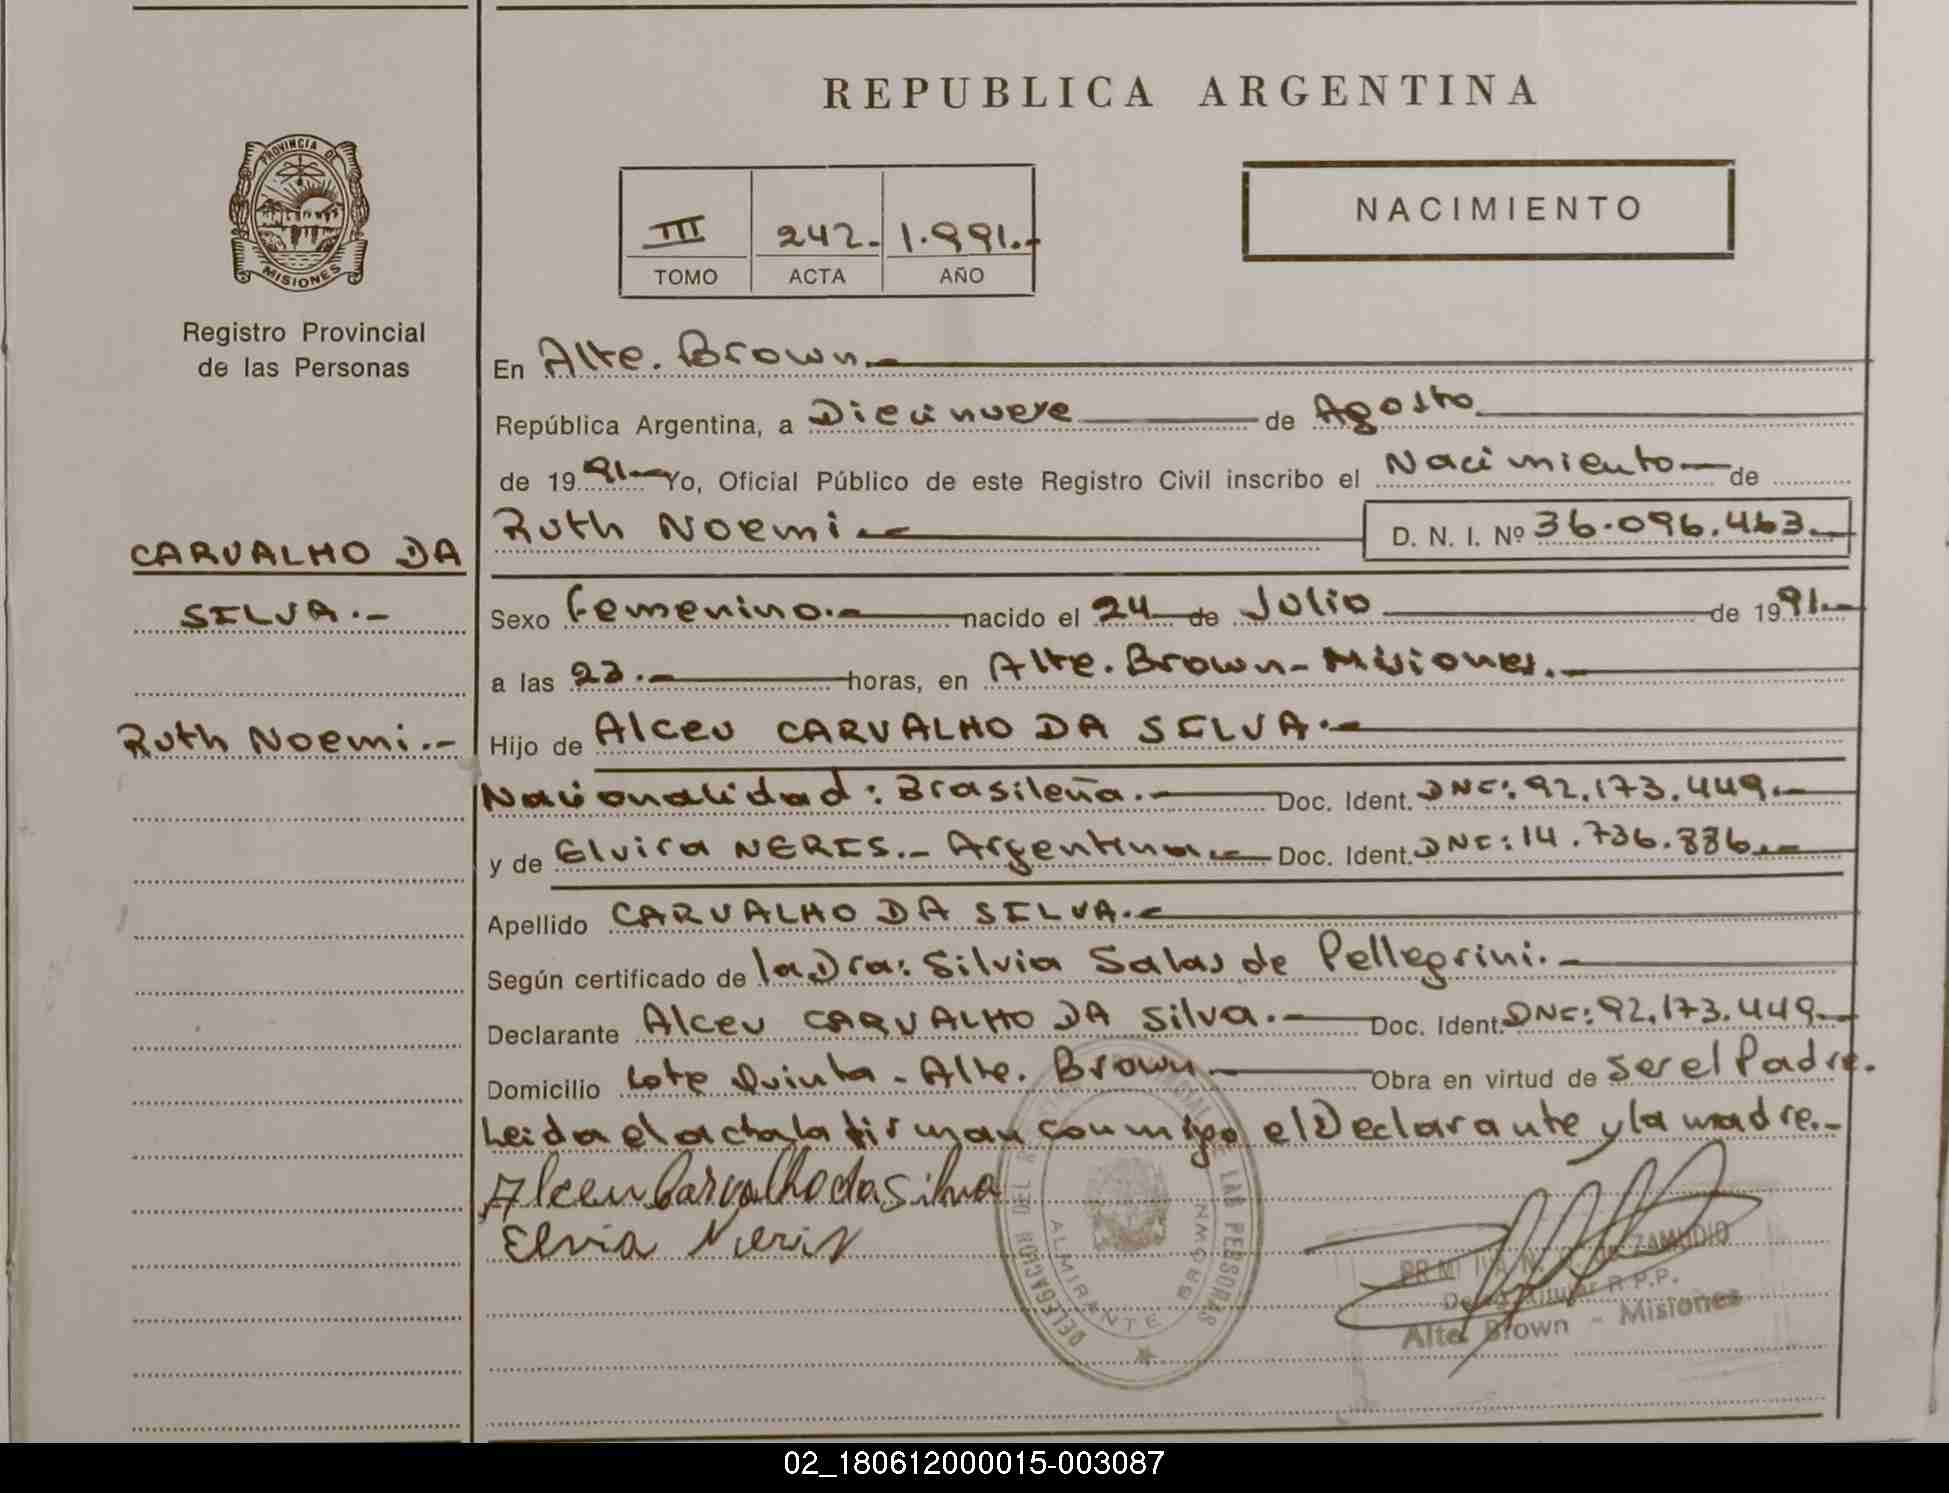 REPUBLICA ARGENTINA
PROVINCIA DE
MISIONES
Registro Provincial
de las Personas
III 242.- 1.991.-
TOMO ACTA AÑO
NACIMIENTO
CARVALHO DA
SILVA.-
Ruth Noemi.-
En Alte. Brown.-
República Argentina, a Diecinueve de Agosto
de 1991.- Yo, Oficial Público de este Registro Civil inscribo el Nacimiento de
Ruth Noemi.- D. N. I. Nº 36.096.463.-
Sexo Femenino.- nacido el 24 de Julio de 1991.-
a las horas, en Alte. Brown - Misiones.-
Hijo de Alceu CARVALHO DA SILVA.-
Nacionalidad: Brasileña.- Doc. Ident. DNI: 92.173.449.-
y de Elvira NERIS.- Argentina.- Doc. Ident. DNI: 14.736.886.-
Apellido CARVALHO DA SILVA.-
Según certificado de la Dra: Silvia Salas de Pellegrini.-
Declarante Alceu CARVALHO DA Silva.- Doc. Ident. DNI: 92.173.449.-
Domicilio Lote Quinta - Alte. Brown.- Obra en virtud de ser el Padre.
Leida el acta la firman conmigo el Declarante y la madre.-
Alceu Carvalho da Silva
Elvia Neris
DELEGACION DEL LAS PERSONAS
ALMIRANTE BROWN
ZAMUDIO
R.P.P.
Alte. Brown - Misiones
02_180612000015-003087